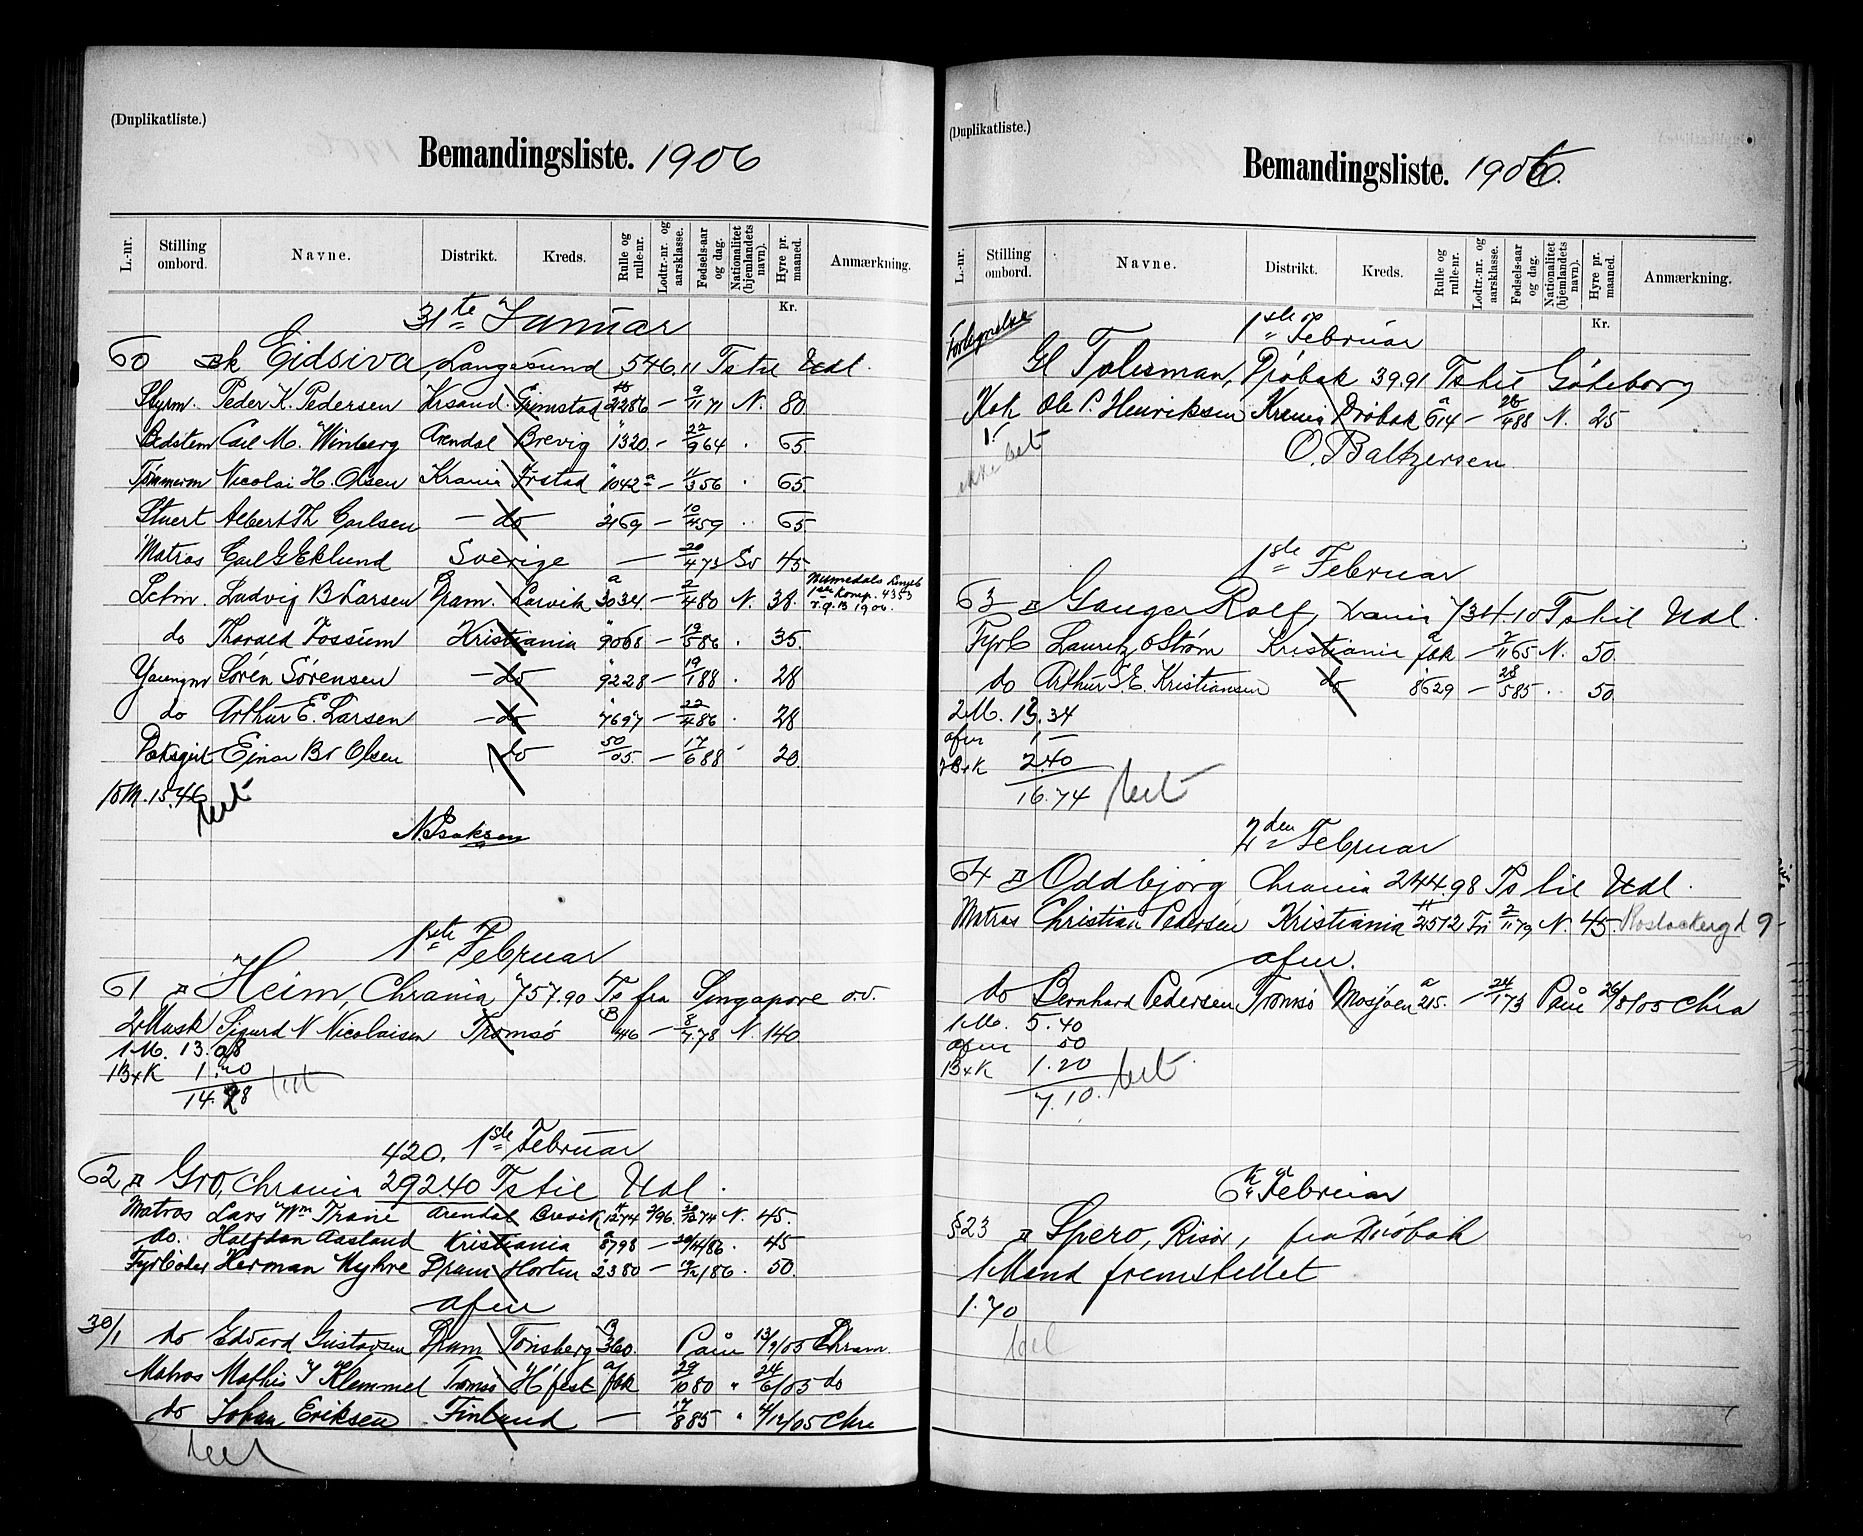 (Duplikatliste.)
Bemandingsliste. 1906
L.-nr. Stilling ombord. Navne. Distrikt. Kreds. Rulle og rulle-nr. Lodtr.-nr. og aarsklasse. Fødsels-aar og dag. Nationalitet (hjemlandets navn). Hyre pr. maaned. Anmærkning.
Kr.
31te Januar
60 Eidsiva, Langesund 546.11 Ts til Udl.
Styrm. Peder K. Pedersen Krsand Grimstad 2286 — 9/11 71 N. 80
Bedstem Carl M. Winberg Arendal Brevig 1320 — 22/9 64 . 65
Tømmerm Nicolai H. Olsen Krania Frstad 1042a — 11/3 56 . 65
Stuert Albert Th Carlsen — do 2169 — 10/4 59 . 65
Matros Carl G Eklund Sverige — 20/4 73 Sv 45
Letm. Ludvig B Larsen Dram. Larvik a 3034 — 2/4 80 N. 38
do Thorald Fossum Kristiania 9068 — 19/5 86 . 35
Youngm Sørén Sørensen — do 9228 — 19/1 88 . 28
do Arthur E. Larsen — do 7697 — 22/4 86 . 28
Dæksgut Ejnar Br Olsen do 50/05 — 17/6 88 20
10 M. 15.46
bet
N. Isaksen
1ste Februar
61 Heim, Chrania 757.90 Ts fra Singapore o.v.
2 Mask Sigurd N Nicolaisen Tromsö B 416 — 8/7 78 N. 140
1 M. 13.08
1 B+K 1.20
14.28 bet
420. 1ste Februar
62 Gro, Chrania 292.40 Ts til Udl.
Matros Lars Wm Trane Arendal Brevik 1274 2/96 N. 45.
do. Halfdan Aasland Kristiania a 8798 — 45
Fyrbøder Herman Myhre Dram Horten 2380 — 50
afm
30/1 do Edvard Gustavsen Dram Tønsberg B 360. Paam 13/9/05 Dram
Matros Mathis J Klemmel Tromsö Hfest a/fbk 29/10 80 " 24/6/05 do
do Johan Eriksen Finland — 17/8 85 " 4/12/05 Chra
bet
(Duplikatliste.)
Bemandingsliste. 1906.
L.-nr. Stilling ombord. Navne. Distrikt. Kreds. Rulle og rulle-nr. Lodtr.-nr. og aarsklasse. Fødsels-aar og dag. Nationalitet (hjemlandets navn). Hyre pr. maaned. Anmærkning.
Kr.
Forlegnelse
1ste Februar
Gl Talisman, Drøbak 39.91 Ts til Göteborg
Kok Ole P. Henriksen Krania Drøbak a 614 — 26/4 88 N. 25
1.- ikke bet
O. Baltzersen
1ste Februar
63 Ganger Rolf, Krania 734.10 Ts til Udl.
Fyrb Lauritz O Strøm Kristiania a fbk — 7/11 65 N. 50
do Arthur E. Kristiansen do 8629 — 28/5 85 . 50
2 M. 13.34
afm 1 —
2 B+K 2.40
16.74 bet
2den Februar
64 Oddbjörg Chrania 244.98 Ts til Udl.
Matros Christian Pedersen Kristiania 2572 Fri 2/11 79 N. 45
afm.
do Bernhard Pedersen Tromsö Mosjøen a 215. — 24/1 73 Paam 26/8/05 Chra
1 M. 5.40
afm 50
1 B+K 1.20
7.10. bet
6te Februar
§23 Spero, Risör, fra Drøbak
1 Mand fremstillet
1.70
bet